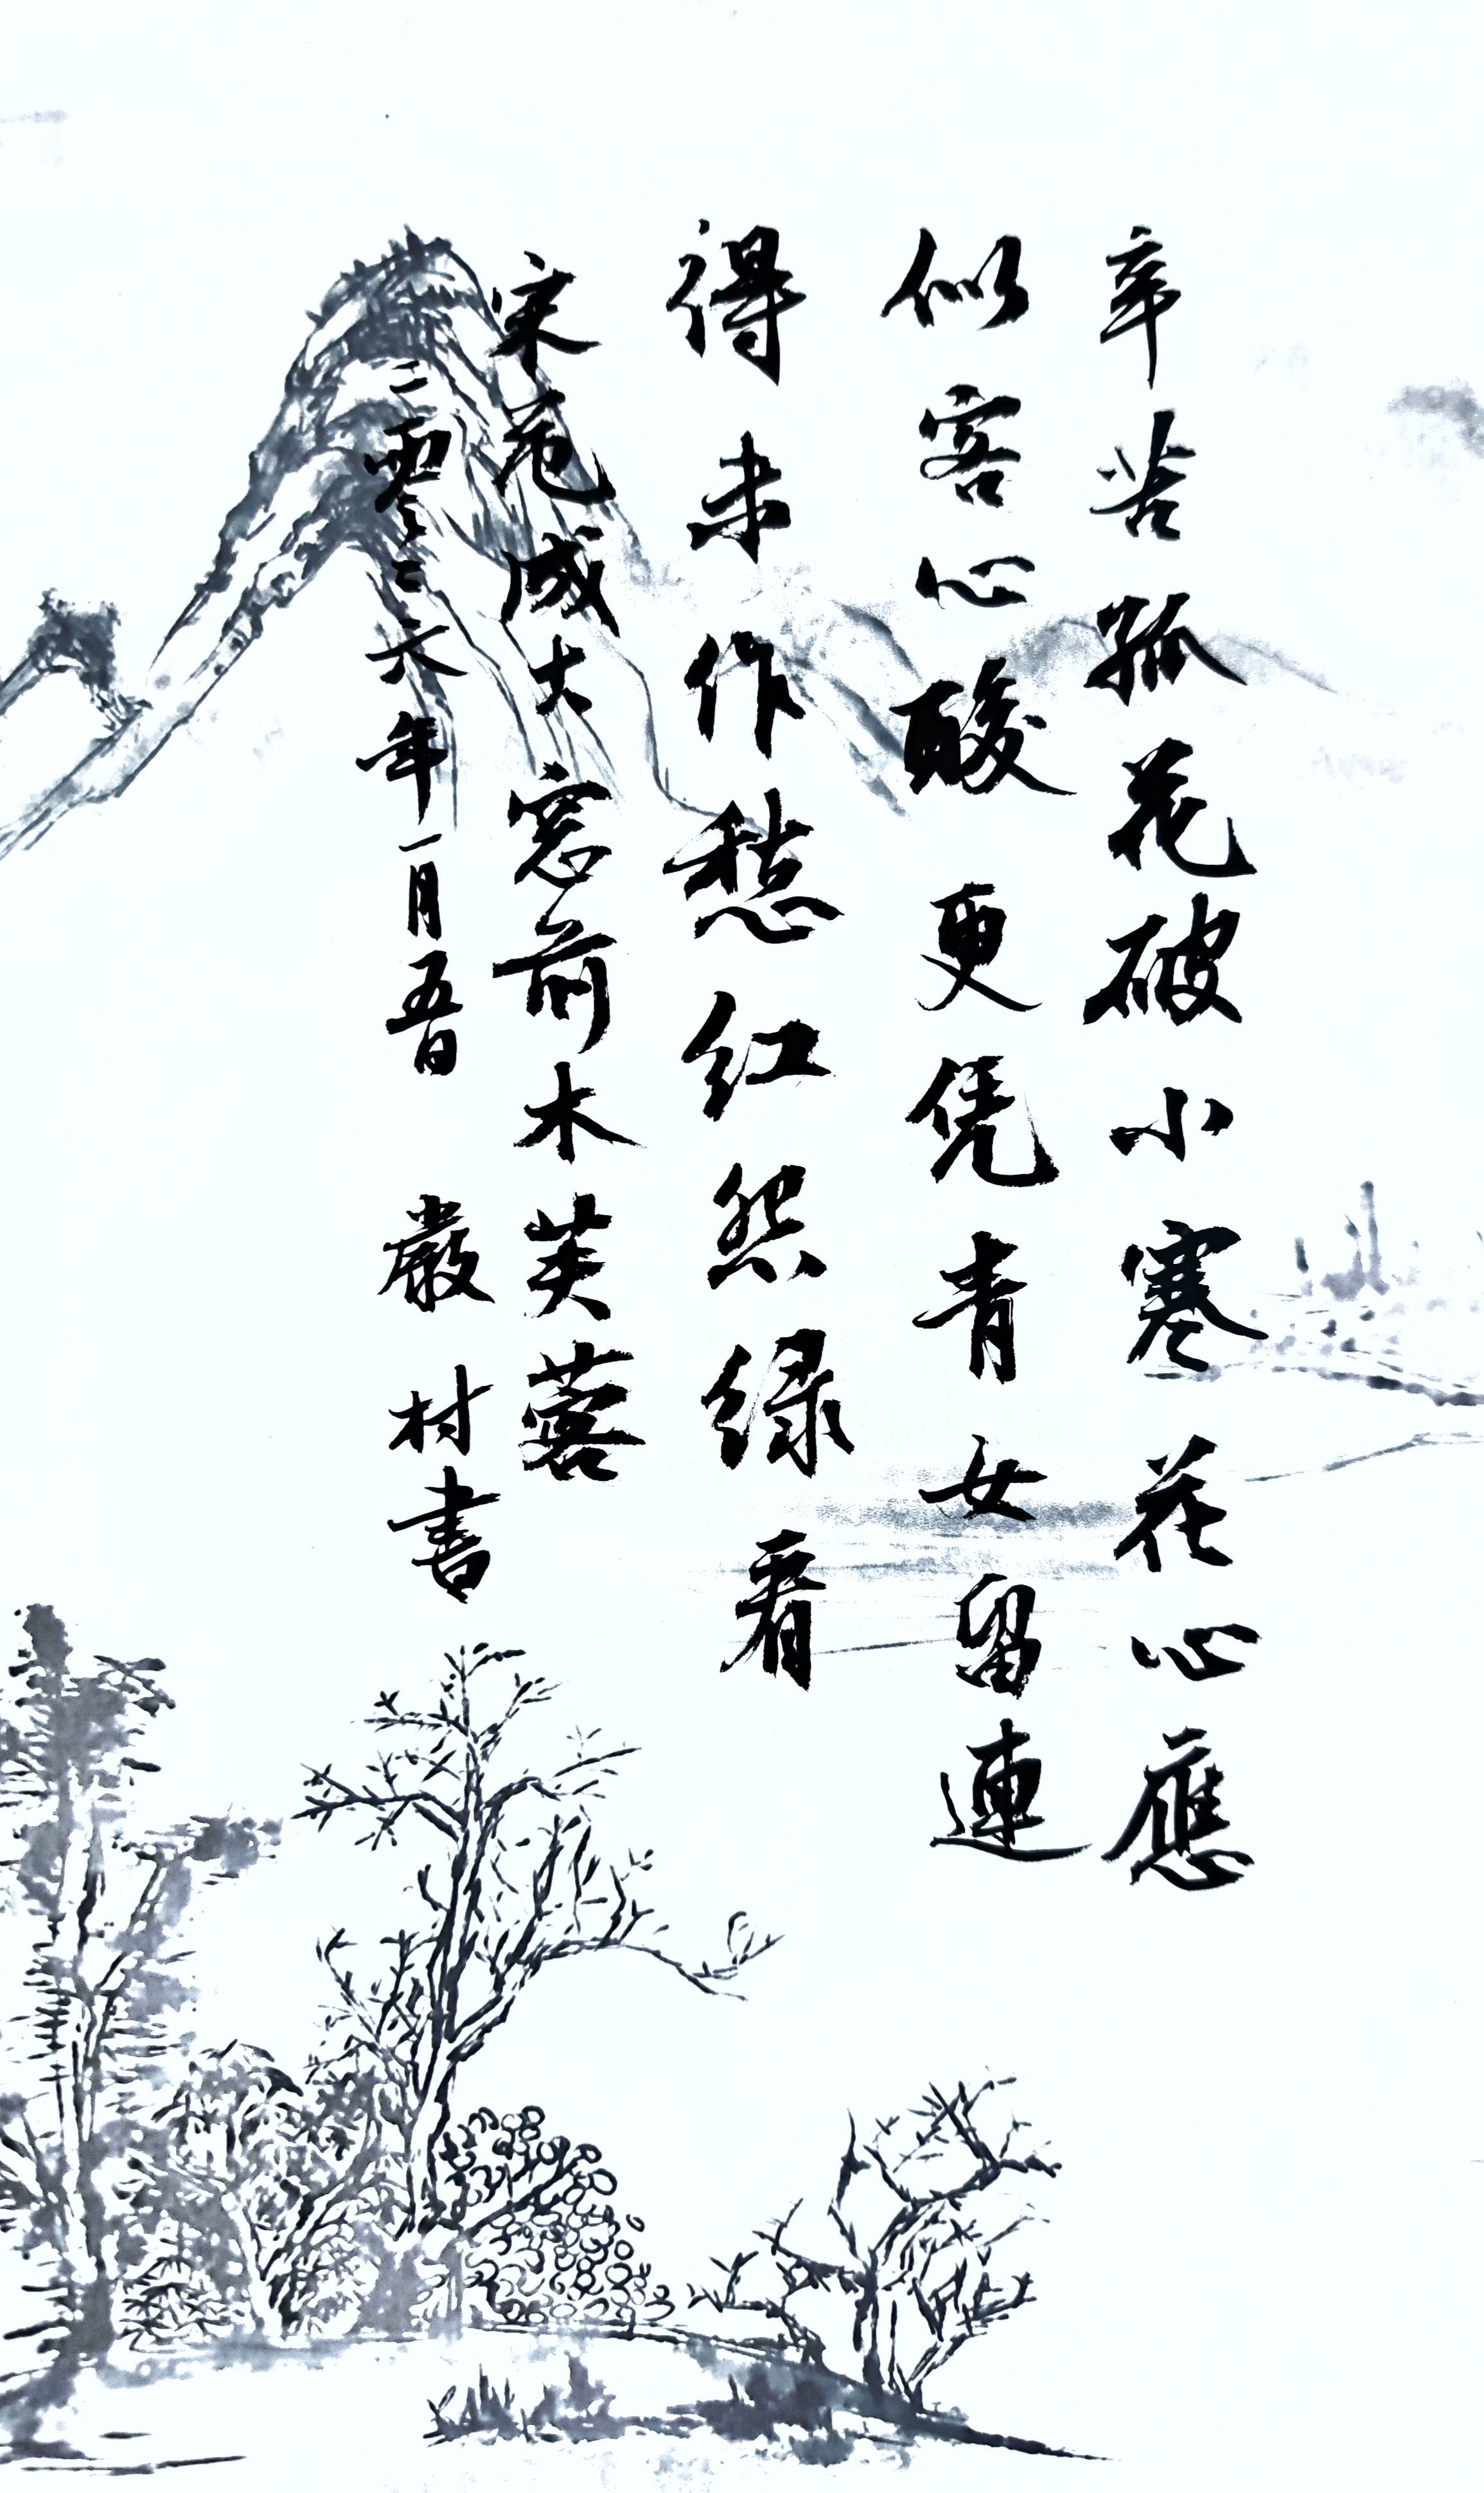 辛苦孤花破小寒花心應
似客心酸更凭青女留連
得未作愁红怨绿看
宋范成大窓前木芙蓉
二零二六年一月五日
嚴村書